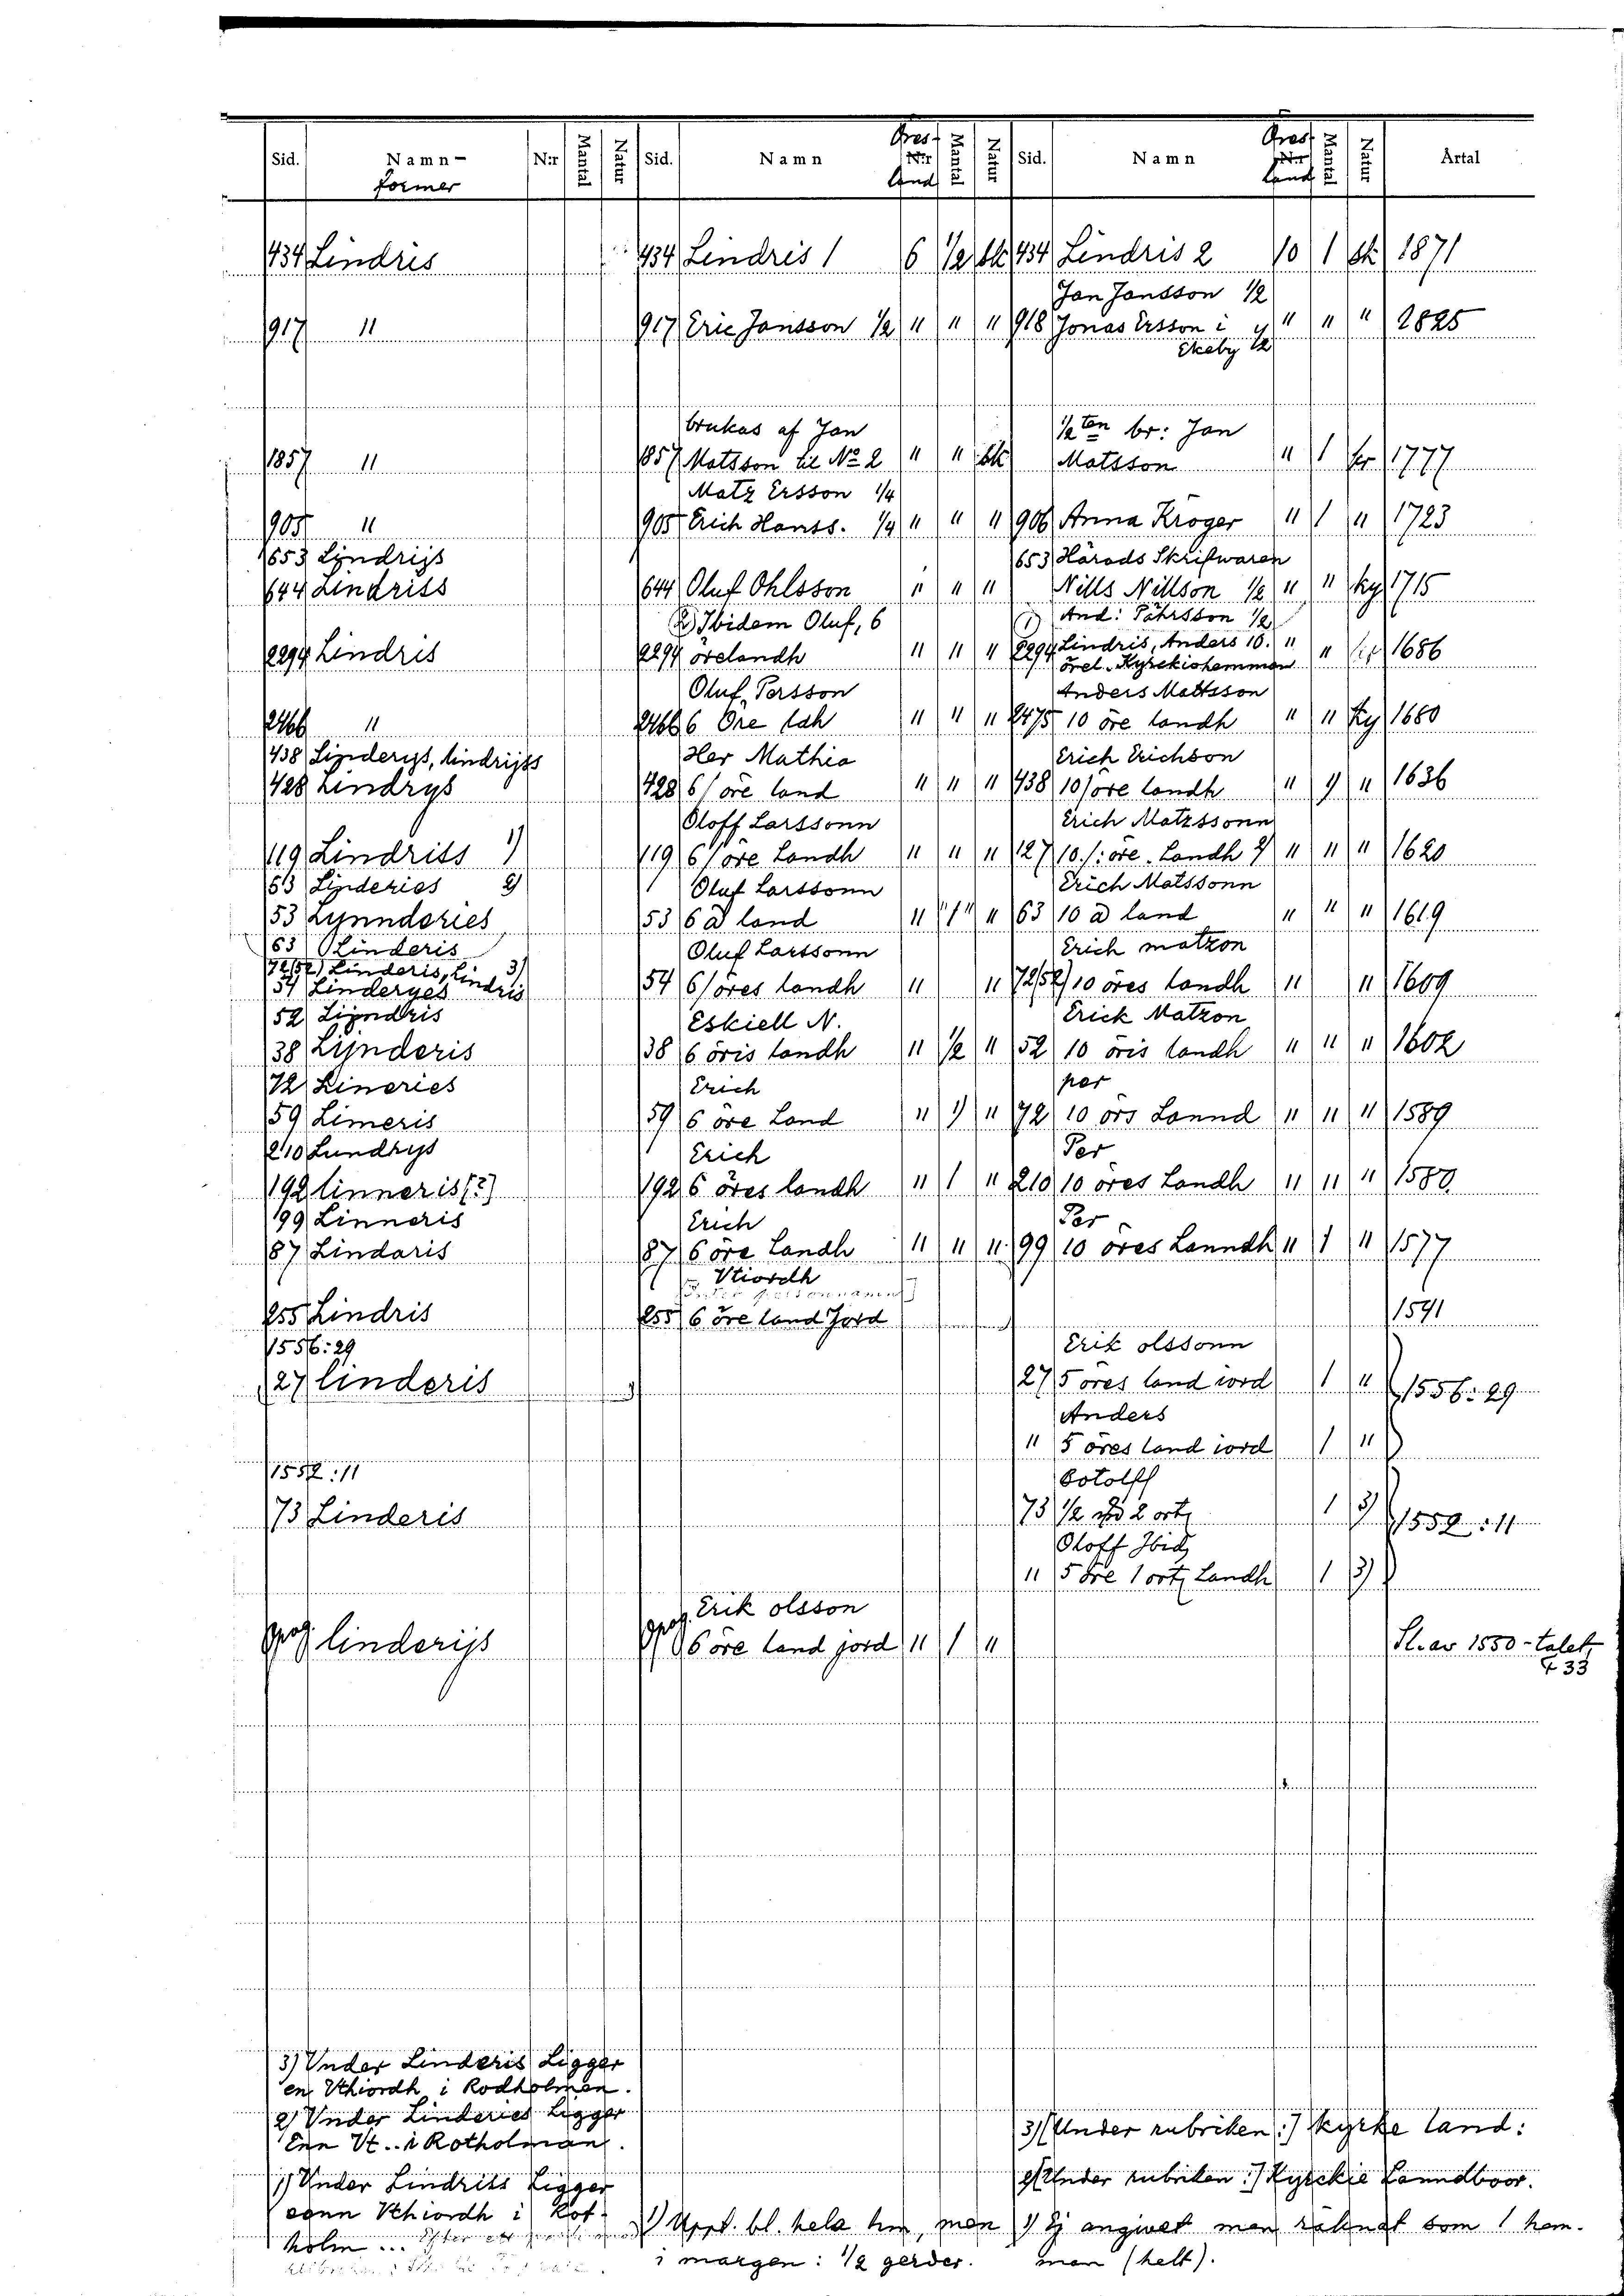 Sid. Namn- Nir Mantal Natur Sid. Namn Öres- Nir Mantal Natur Sid. Namn Öres- Nir Mantal Natur Årtal
former land land
434 Lindris 434 Lindris 1 6 1/2 sk 434 Lindris 2 10 1 sk 1871
Jan Jansson 1/2
917 " 917 Eric Jansson 1/2 " " " 918 Jonas Ersson i " " " 1825
Ekeby 1/2
brukas af Jan 1/2ten br: Jan
1857 " 1857 Matsson til No 2 " " sk Matsson " 1 kr 1777
Matz Ersson 1/4
905 " 905 Erich Hanss. 1/4 " " " 906 Anna Kröger " 1 " 1723
653 Lÿndrijs 653 Härads Skrifwaren
644 Lindriss 644 Oluf Ohlsson " " " Nills Nillson 1/2 " " ky 1715
2) Ibidem Oluf, 6 1) And: Pährsson 1/2
2294 Lindris 2294 örelandh " " " 2294 Lindris, Anders 10. " " 1686
örel. Kyrekiohemman
Oluf Persson Anders Mattsson
2466 " 2466 6 Öre lah " " " 2475 10 öre landh " " Ky 1680
438 Linderijs, lindrijss Her Mathia Erich Erichson
428 Lindrys 428 6 / öre land " " " 438 10 / öre landh " " " 1636
Oloff Larssonn Erich Matzssonn
119 Lindriss 1) 119 6 / öre Landh " " " 127 10 /: öre. Landh 2) " " " 1620
63 Linderies 2) Oluf Larssonn Erich Matssonn
53 Lynnderies 53 6 ø land " 1) " 63 10 ø land " " " 1619
63 Linderis Oluf Larssonn Erich matzon
72/52) Linderis, Lindris 3)
54 Linderyes 54 6 / öres landh " " 72/52) 10 öres landh " " 1609
52 Lijndris Eskiell N. Erick Matzon
38 Lijnderis 38 6 öris landh " 1/2 " 52 10 öris landh " " " 1602
72 Lineries Erich per
59 Limeris 59 6 öre Land " 1) " 72 10 örs Lannd " " " 1589
210 Lundrys Erich Per
192 linneris(?) 192 6 öres landh " 1 " 210 10 öres Landh " " " 1580
99 Linneris Erich Per
87 Lindaris 87 6 öre Landh " " " 99 10 öres Lanndh " 1 " 1577
Vtiordh
255 Lindris 255 6 öre land Jord 1591
1556:29 Erik olssonn
27 linderis 27 5 öres land iord 1 " 1556:29
Anders
" 5 öres land iord 1 "
1552:11 Botolff
73 Linderis 73 1/2 2 ortz 1 3) 1552:11
Oloff Ibidz
" 5 öre 1 ortz Landh 1 3)
Erik olsson
linderijs 6 öre land jord " 1 " Sl. av 1550-talet
33
3) Vnder Linderis Ligger
en Vthiordh i Rodholmen.
2) Vnder Linderies Ligger
Enn Vt.. i Rotholman.
1) Vnder Lindriss Ligger
eenn Vthiordh i Rot-
holm ...
3) (Under rubriken:) Kyrke land:
2) (Under rubriken:) Kyrckie Lanndboor.
1) Uppt. bl. hela hm, men
i margen: 1/2 gerder.
1) Ej angivet men räknat som 1 hem-
man (helt).